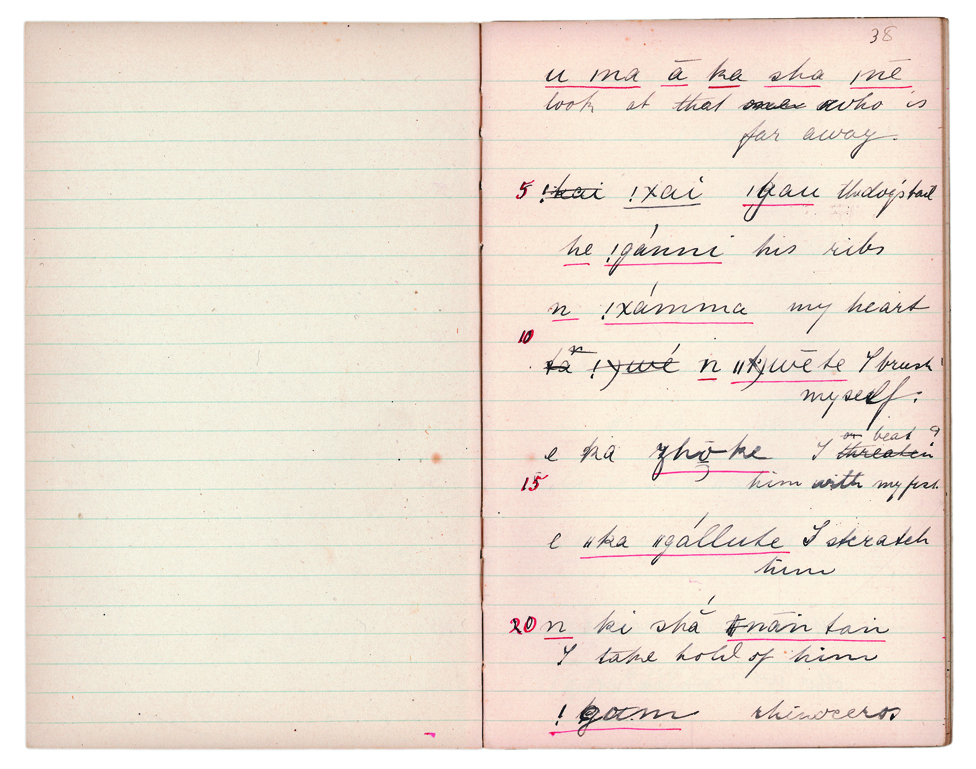 38
u ǀna ā ka sha ǀnē
look at that one who is
far away.
5 !kai !xai ǃgau the dog's tail
he !gánni his ribs
n !xámma my heart
10
n ǁk)wēte I brush
myself.
e ka zhō ke I threaten or beat ?
15 him with my fist
e ǁka ǁgállute I scratch
him
20 n ki shă ǂnān tan
I take hold of him
! gam rhinoceros